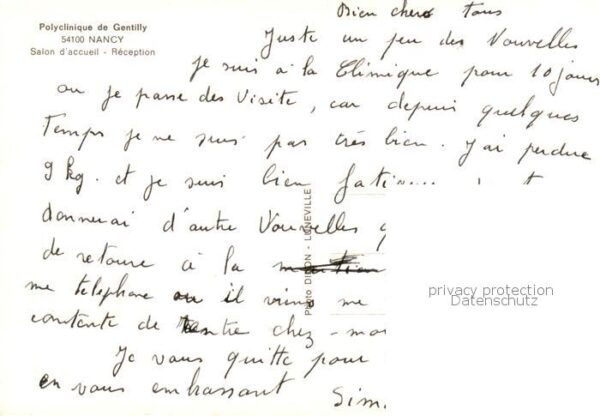 Polyclinique de Gentilly
54100 NANCY
Salon d'accueil - Réception
Bien chers tous
Juste un peu des Nouvelles
je suis à la Clinique pour 10 jours
ou je passe des Visite, car depuis quelques
Temps je ne suis pas très bien. J'ai perdue
9 kg. et je suis bien
donnerai d'autre Nouvelles
de retoure à la
me telephone ou il me
contente de rentre chez-moi
Je vous quitte pour
en vous embrassant Sim.
Photo DIRON - LUNEVILLE
privacy protection
Datenschutz